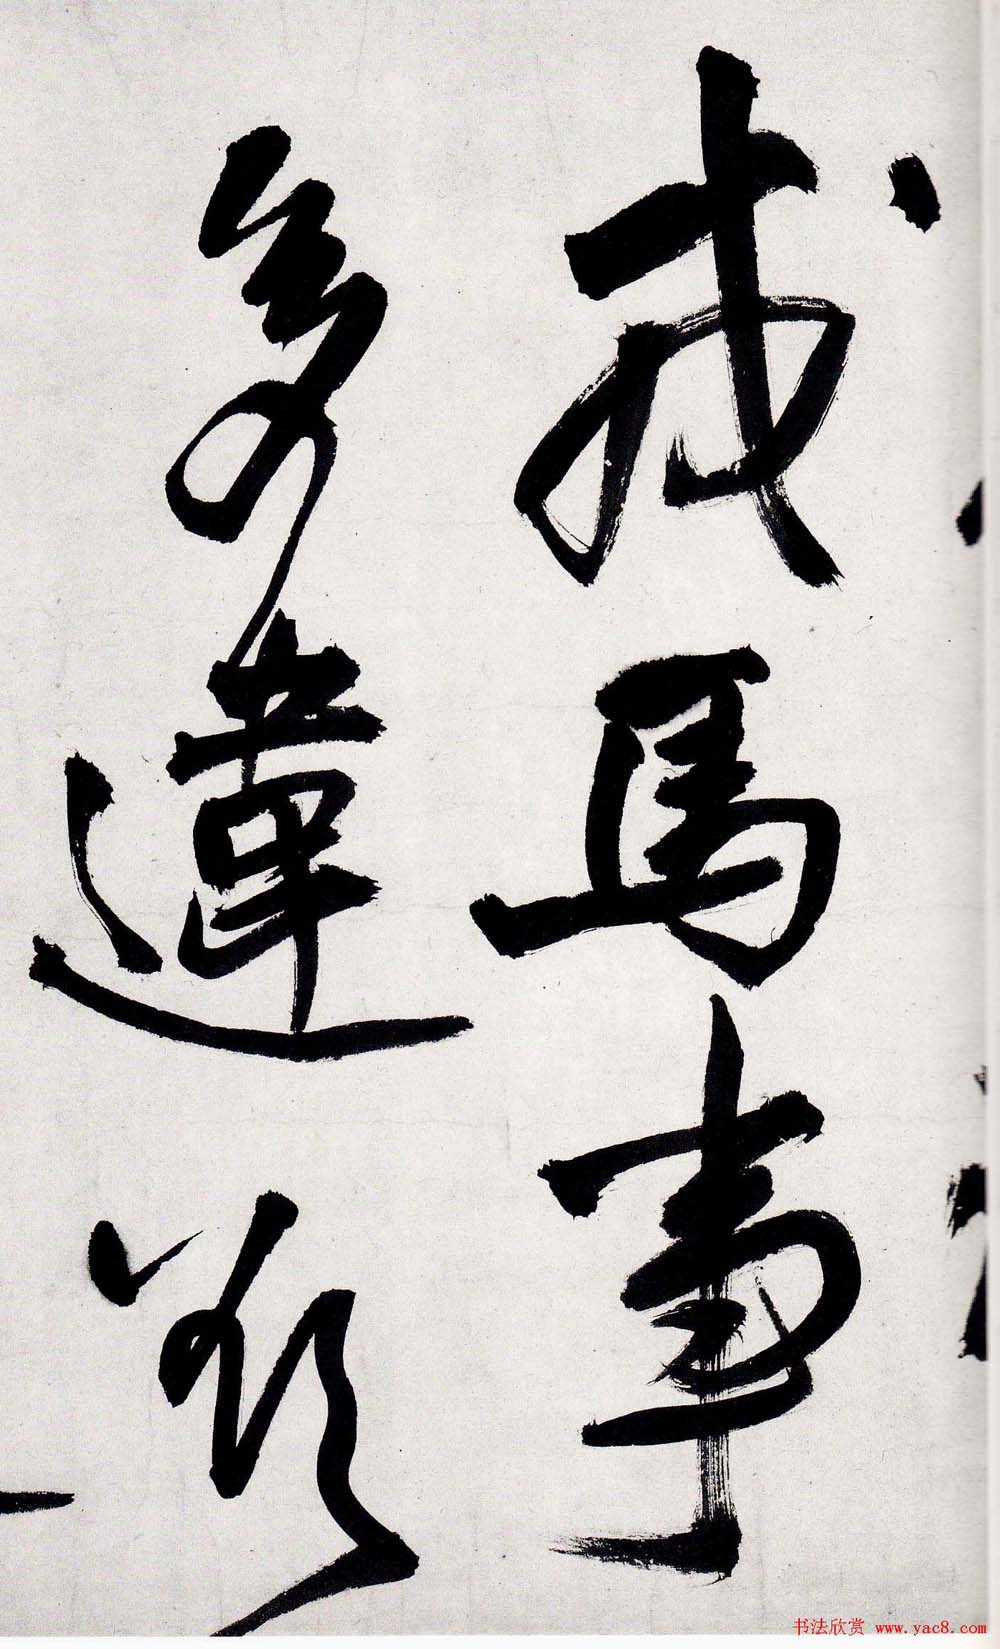 戎馬事
多違欲
书法欣赏 www.yac8.com